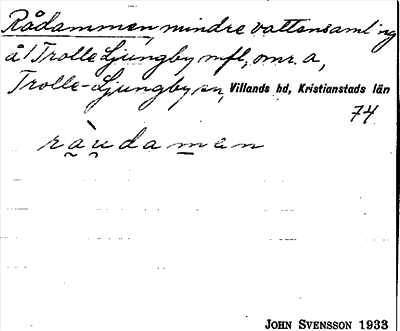 Rådammen, mindre vattensamling
å Trolle Ljungby mfl, omr. a,
Trolle-Ljungby sn, Villands hd, Kristianstads län
74
ràu̯damen
JOHN SVENSSON 1933